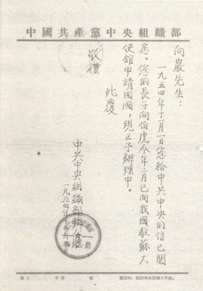 中國共產黨中央組織部
向嚴先生：
一九五四年十一月一日您給中共中央的信已閱
悉，您的長子向伯虎今年三月已向我國駐蘇大
使館申請回國，現正予辦理中。
此覆
敬禮
中共中央組織部辦公廳
一九五四年